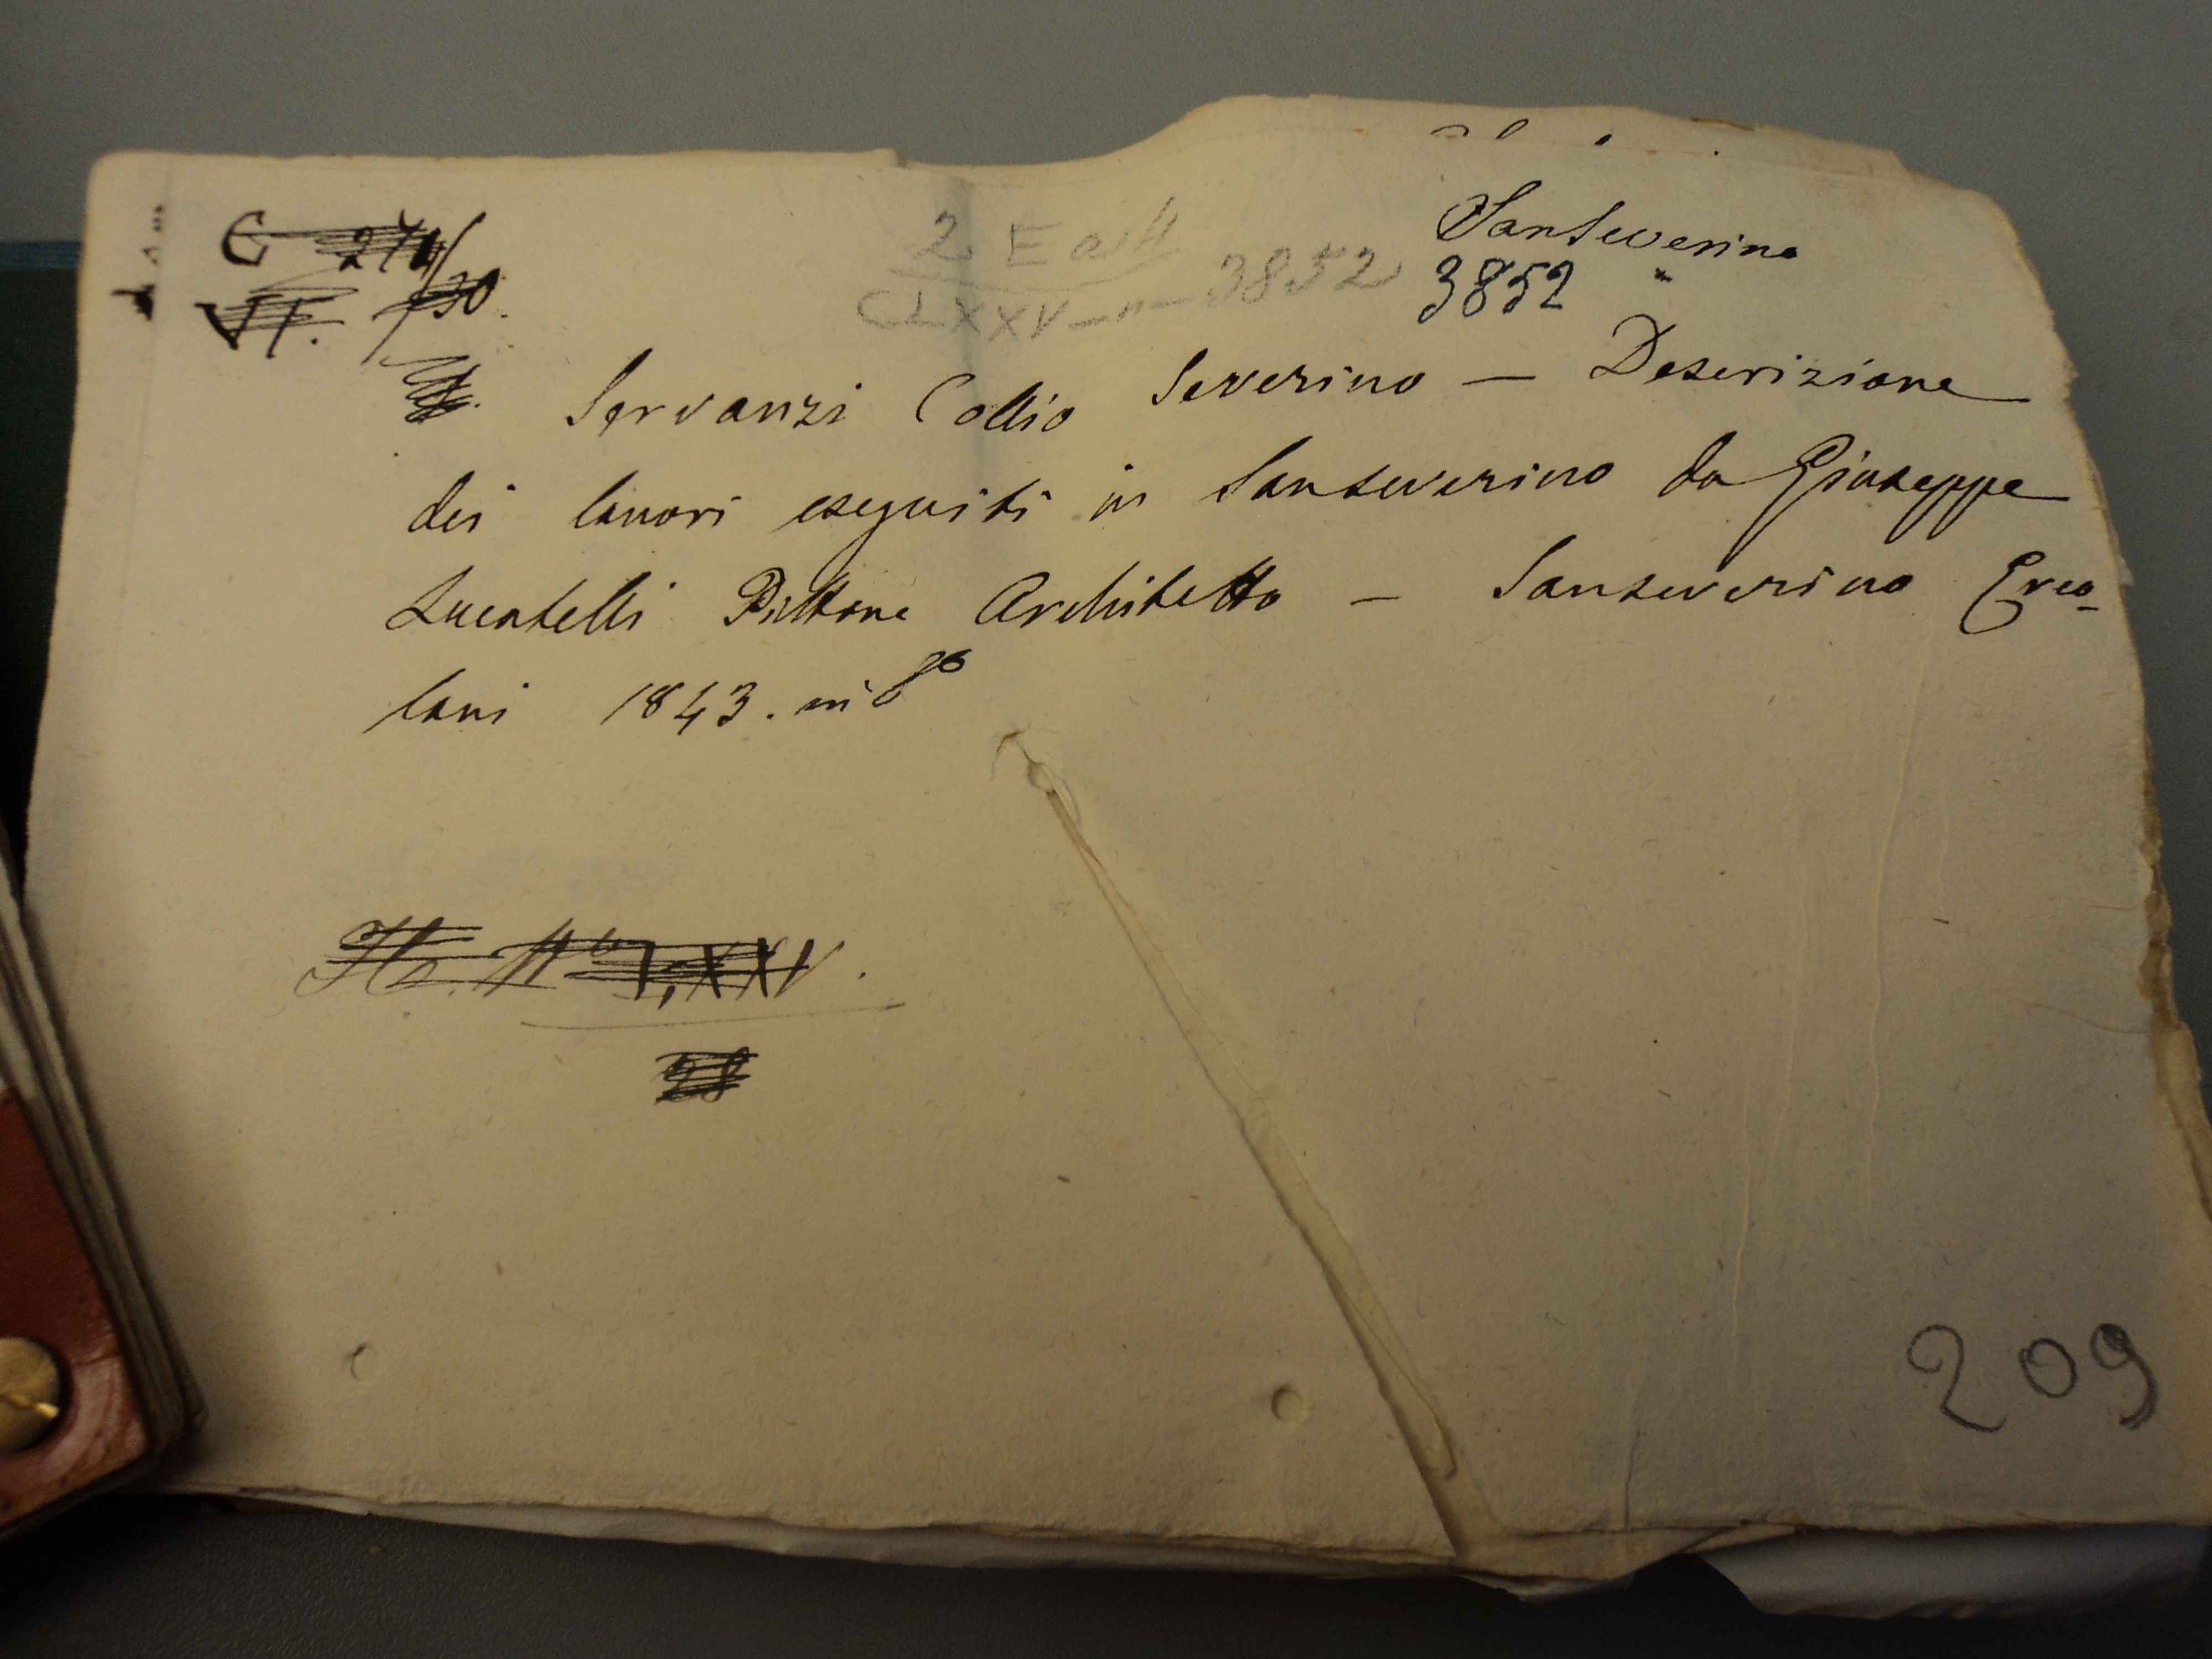 Sanseverino
3852
CLXXV - n - 3852
Servanzi Collio Severino — Descrizione
dei lavori eseguiti in Sanseverino da Giuseppe
Lucatelli Pittore Architetto — Sanseverino Erco-
lani 1843. in 8º
LXXV.
209